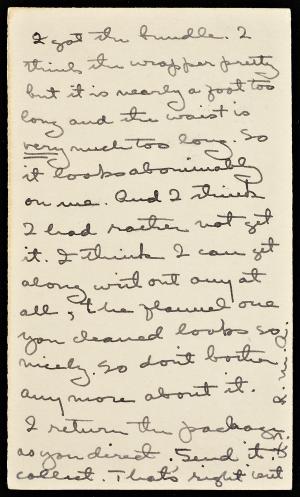 I got the bundle. I
think the wrapper pretty
but it is nearly a foot too
long and the waist is
very much too long. So
it looks abominably
on me. And I think
I had rather not get
it. I think I can get
along without any at
all, the flannel one
you cleaned looks so
nicely. So don't bother
any more about it.
I return the package
as you direct. Send it
collect. That's right isn't